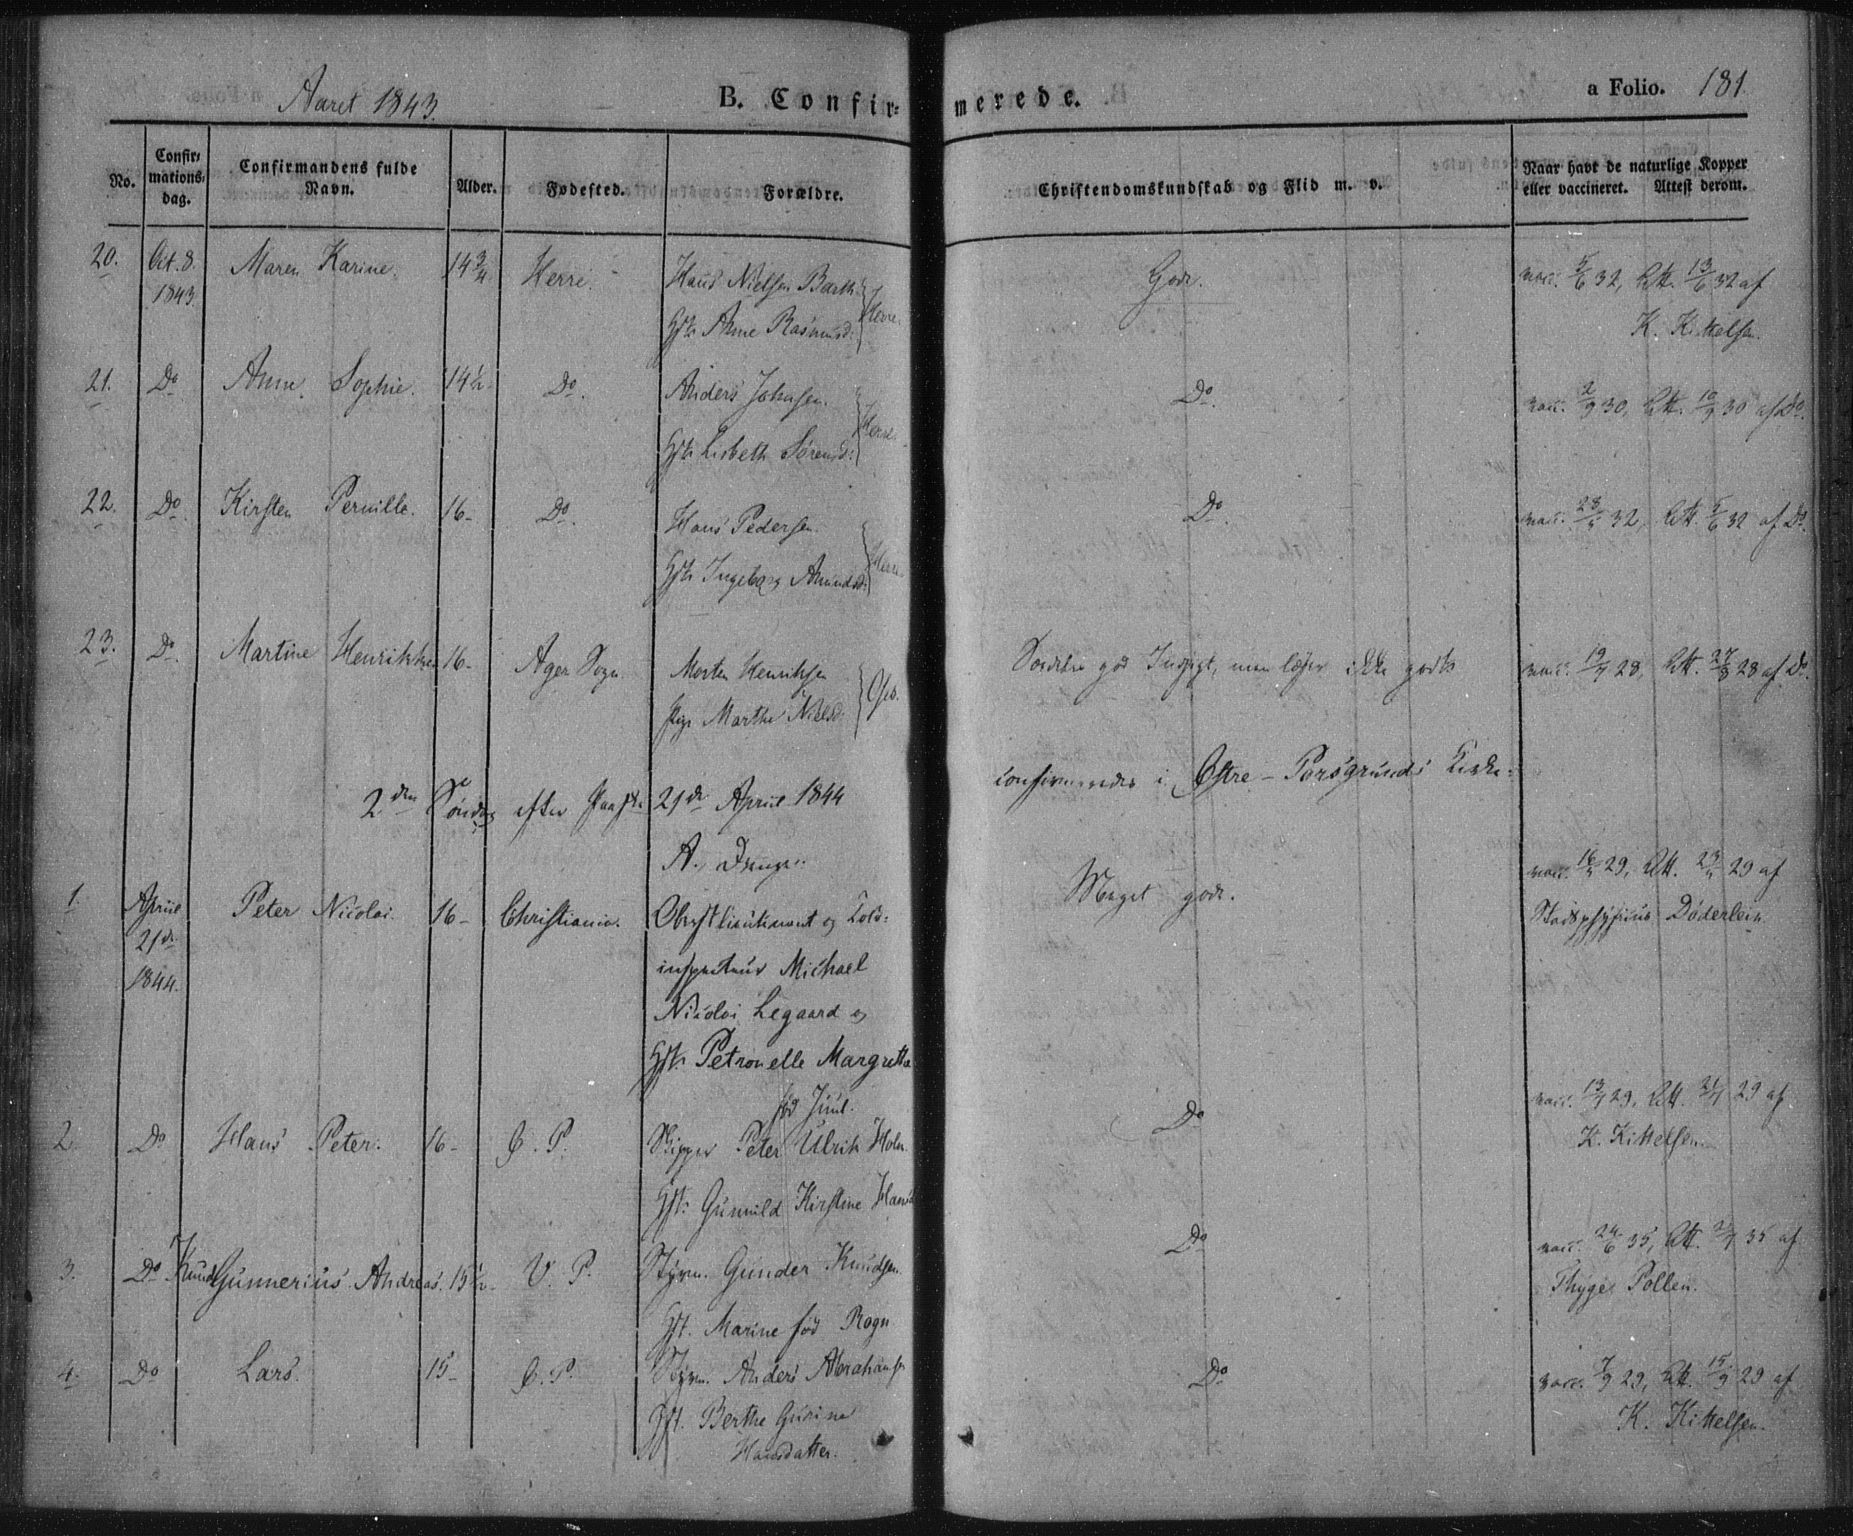 Aaret 1843.
B. Confir=
merede.
a Folio. 181
No.
Confir=
mations=
dag.
Confirmandens fulde
Navn.
Alder.
Fødested.
Forældre.
Christendomskundskab og Flid m. v.
Naar havt de naturlige Kopper
eller vaccineret. Attest derom.
20. Oct. 8. Maren Karine. 14 3/4 Herre. Hans Nielsen Barth Godt. vacc. 5/6 32, Att. 13/6 32 af
1843. Hst. Anne Rasmusd: Herre. K. Kittelsen.
21. Do Anne Sophie. 14 1/2. Do. Anders Johnsen. Do. vacc. 2/9 30, Att. 10/9 30 af Do.
Hst. Lisbeth Sørensd: Herre.
22. Do. Kirsten Pernille. 16- Do. Hans Pedersen. Do. vacc. 28/5 32, Att. 5/6 32 af Do.
Hst. Ingeborg Amundsd: Herre
23. Do. Martine Henrikke 16- Agers Sogn Morten Henriksen god Indsigt, men læser ikke godt vacc. 19/7 28, Att. 27/8 28 af Do.
Pige Marthe Nielsd:
2den Søndag efter Paaske 21de April 1844 confirmeredes i Østre-Porsgrunds Kirke:
A. Drenge.
1. April Peter Nicolai. 16- Christiania. Oberstlieutenant og Told= Meget godt. vacc. 16/5 29, Att. 23/5 29 af
21de inspecteur Michael Stadsphysicus Døderlein
1844. Nicolai Legaard og
Hst. Petronelle Margrethe
fød Juul.
2. Do Hans Peter. 16- Ø. P. Skipper Peter Ulrik Holm Do vacc. 13/7 29, Att. 21/7 29 af
Hst. Gunnild Kirstine Hansd K. Kittelsen.
3. Do Knud Gunnerius Andreas. 15 1/2. V. P. Styrm. Gunder Knudsen. Do vacc. 24/6 35, Att. 2/7 35 af
Hst. Marine fød Rogn Thyge Pollen.
4. Do Lars. 15- Ø. P. Styrm. Anders Abrahamsen Do vacc. 7/9 29, Att. 15/9 29 af
Hst. Berthe Gurine K. Kittelsen.
Hansdatter.